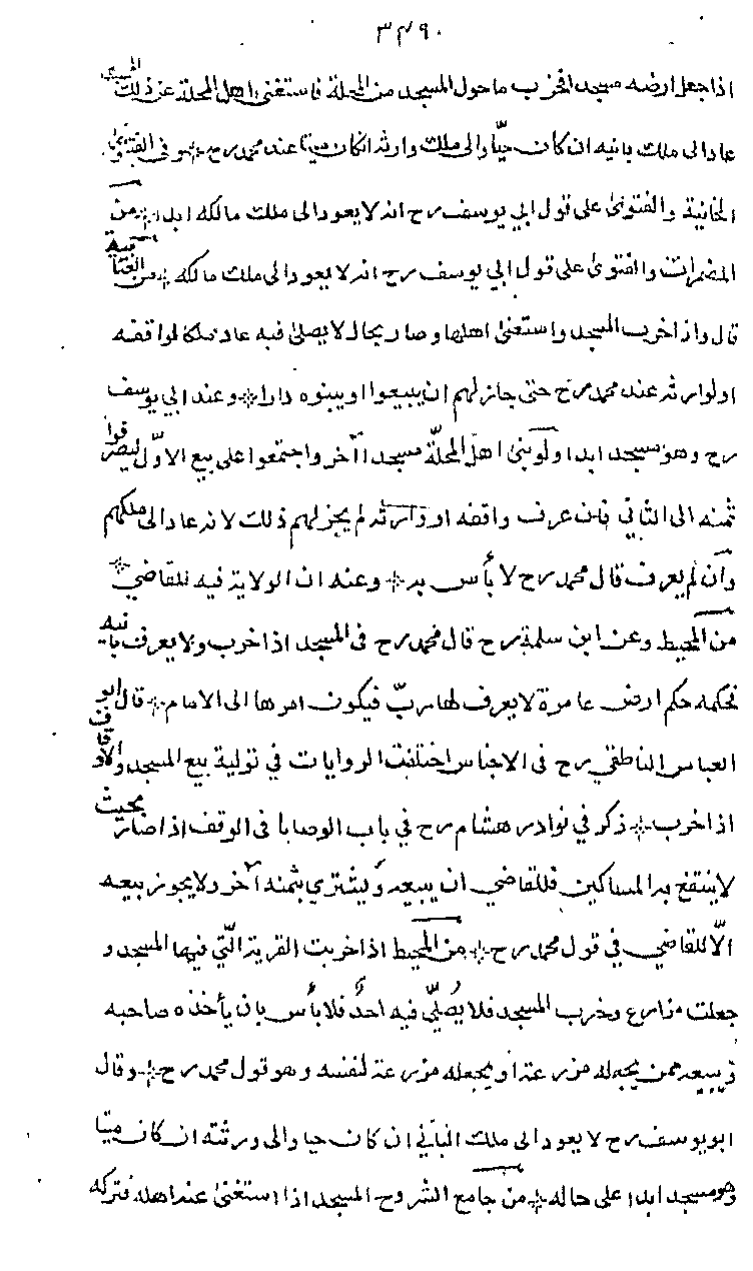 ٣٤٩٠
اذا جعل ارضه مسجدا فخرب ما حول المسجد من المحلة فاستغنى اهل المحلة عن ذلك المسجد
عاد الى ملك بانيه ان كان حيّا والى ملك وارثه انكان ميتا عند محمد رح ❊ وفى الفتوى
الخانية والفتوى على قول ابي يوسف رح انه لا يعود الى ملك مالكه ابدا ❊ من
المضمرات والفتوى على قول ابي يوسف رح انه لا يعود الى ملك مالكه ❊ من العتابية
قال واذا خرب المسجد واستغنى اهلها وصار بحال لا يصلى فيه عاد ملكا لواقفه
او لوارثه عند محمد رح حتى جاز لهم ان يبيعوا او يبنوه دارا ❊ وعند ابي يوسف
رح وهو مسجد ابدا ولو بنى اهل المحلّة مسجدا آخر واجتمعوا على بيع الاوّل ليصرفوا
ثمنه الى الثاني فان عرف واقفه او وارثه لم يجز لهم ذلك لانه عاد الى ملكهم
وان لم يعرف قال محمد رح لا بأس به ❊ وعنه ان الولاية فيه للقاضي ❊
من المحيط وعن ابن سلمة رح قال محمد رح فى المسجد اذا خرب ولا يعرف بانيه
فحكمه حكم ارض عامرة لا يعرف لها ربّ فيكون امرها الى الامام ❊ قال ابو
العباس الناطفي رح فى الاجناس اختلفت الروايات في تولية بيع المسجد والاوقاف
اذا خرب ❊ ذكر في نوادر هشام رح في باب الوصايا فى الوقف اذا صار بحيث
لا ينتفع به المساكين فللقاضي ان يبيعه ويشتري بثمنه آخر ولا يجوز بيعه
الّا للقاضي في قول محمد رح ❊ من المحيط اذا خربت القرية الّتي فيها المسجد و
جعلت مزارع وخرب المسجد فلا يُصلّي فيه احدٌ فلا بأس بان يأخذه صاحبه
ويبيعه ممن يجعله مزرعة او يجعله مزرعة لنفسه وهو قول محمد رح ❊ وقال
ابو يوسف رح لا يعود الى ملك الباني ان كان حيا والى ورثته ان كان ميتا
وهو مسجد ابدا على حاله ❊ من جامع الشروح المسجد اذا استغنى عنه اهله فتركه